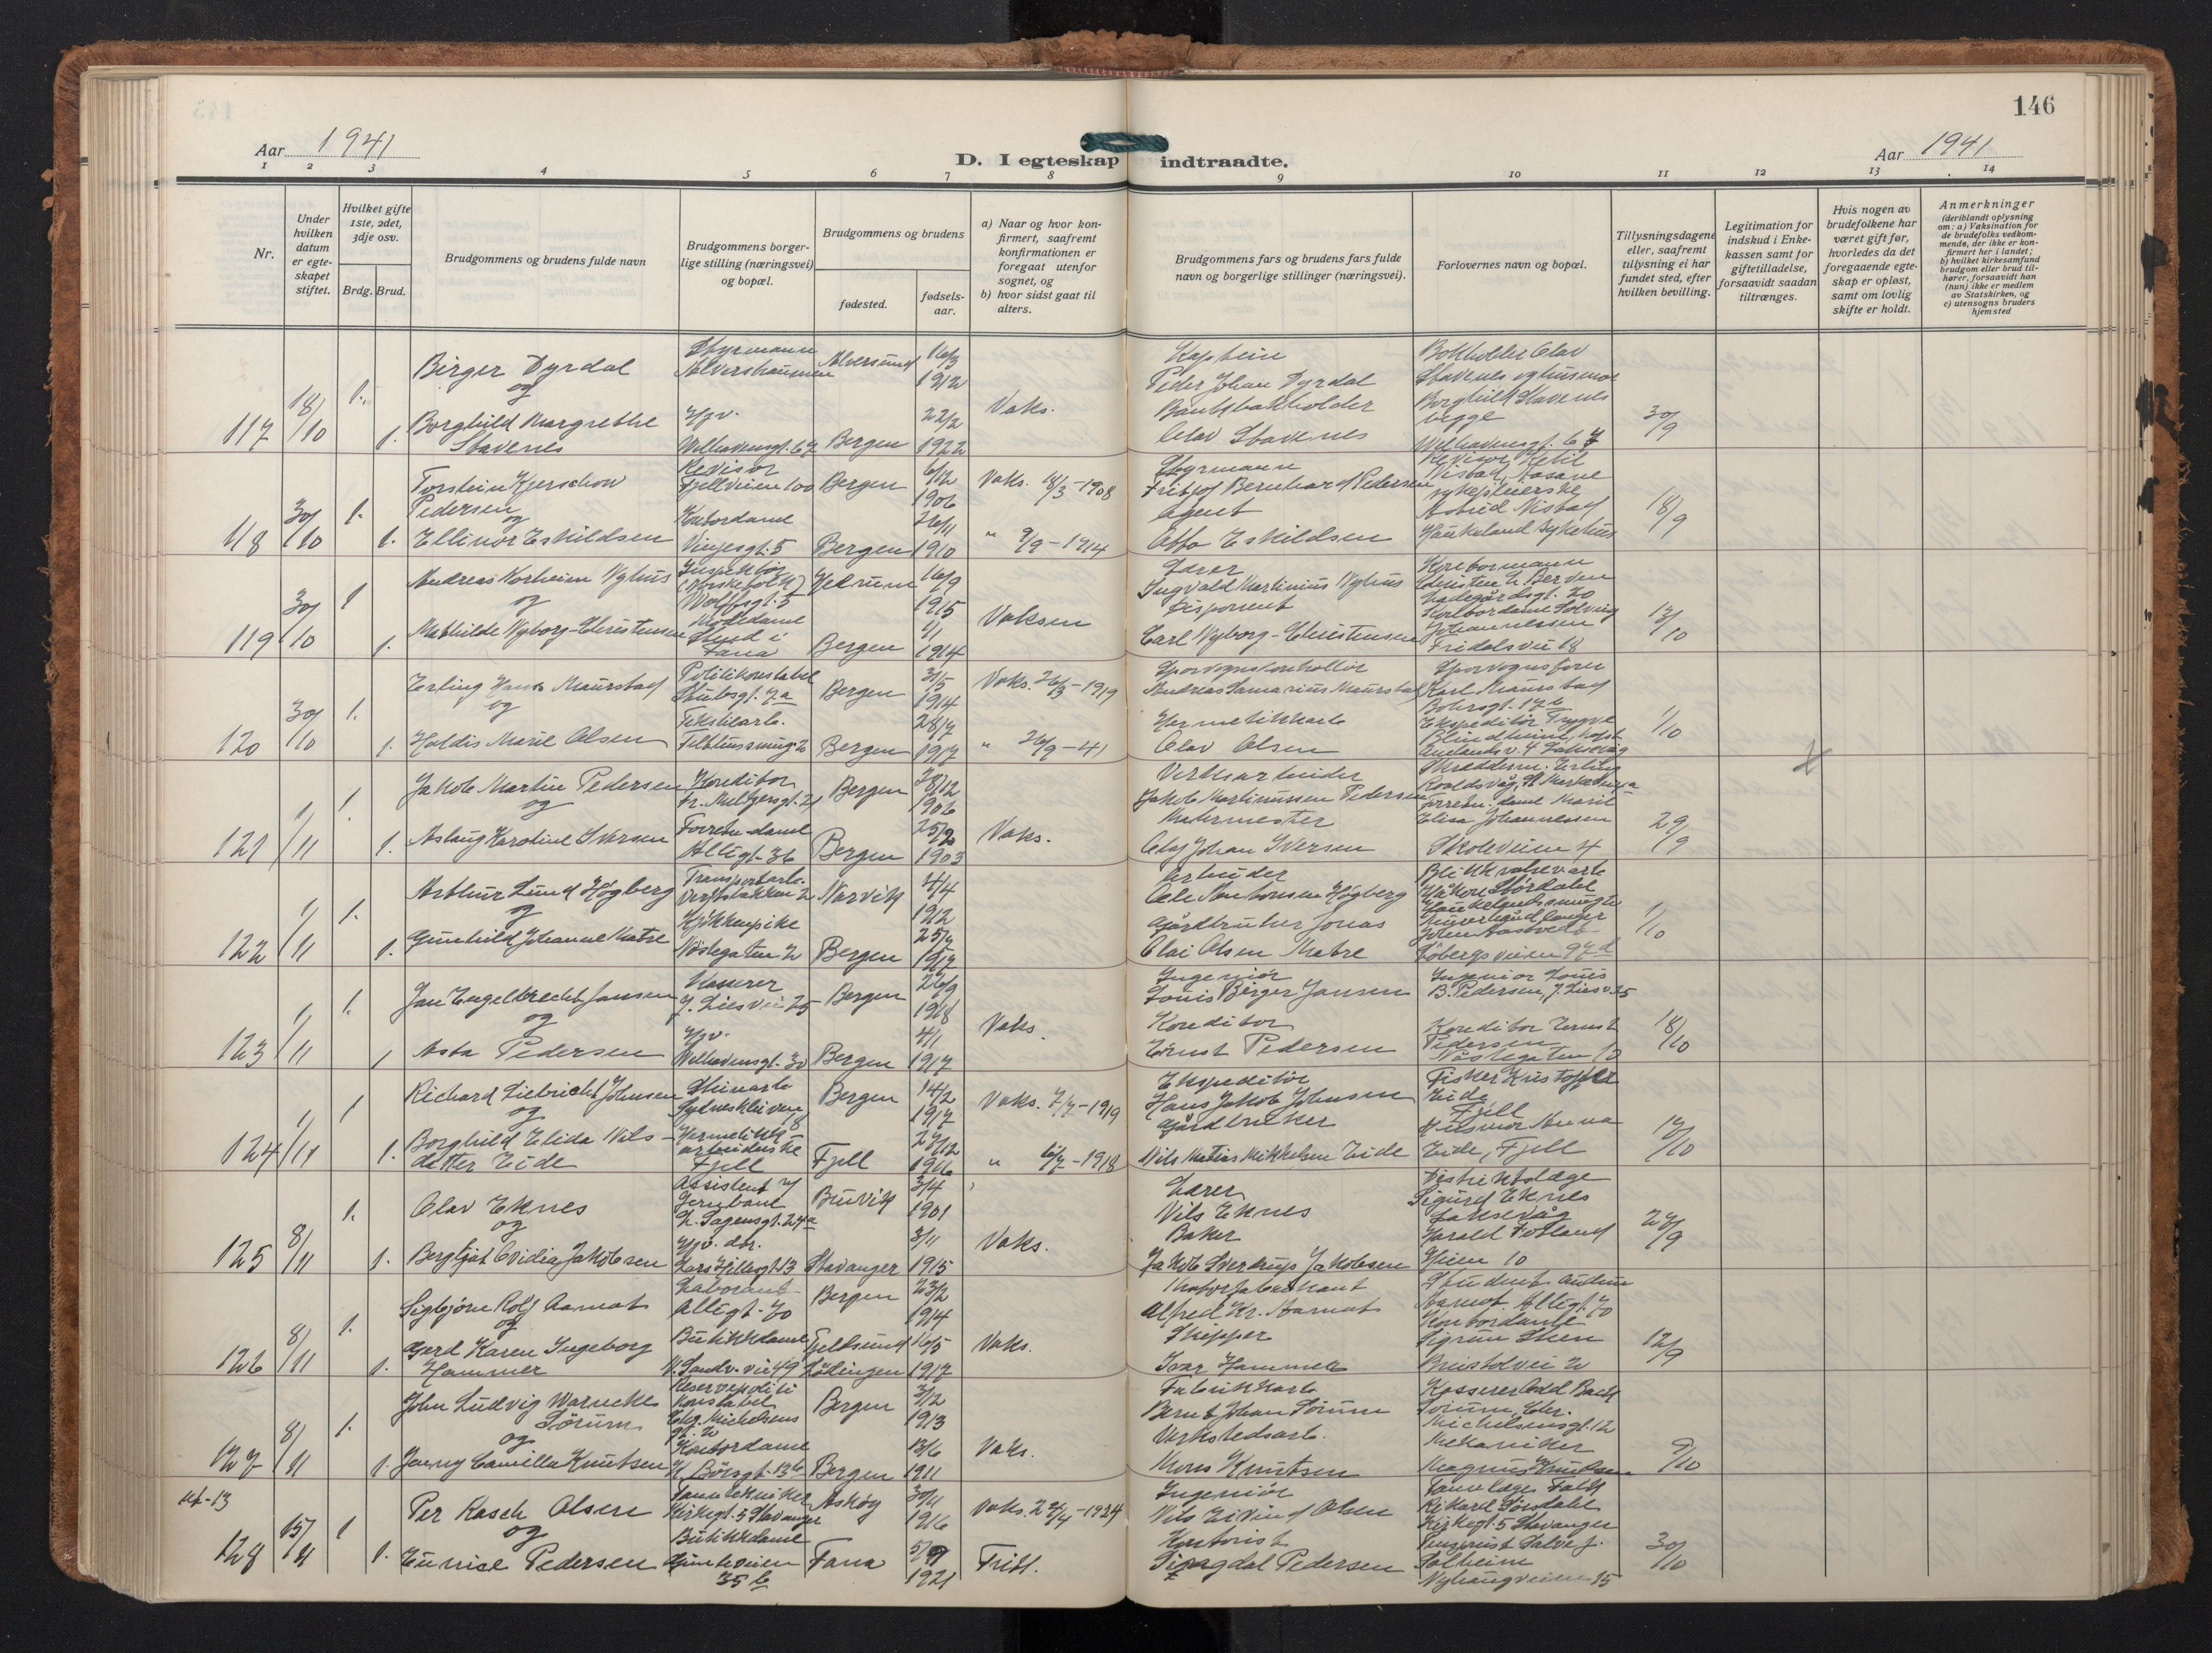 146
Aar 1941
D. I egteskap indtraadte.
Aar 1941
1 2 3 4 5 6 7 8 9 10 11 12 13 14
Nr.
Under hvilken datum er egteskapet stiftet.
Hvilket gifte 1ste, 2det, 3dje osv.
Brdg. Brud.
Brudgommens og brudens fulde navn
Brudgommens borgerlige stilling (næringsvei) og bopæl.
Brudgommens og brudens
fødested.
fødselsaar.
a) Naar og hvor konfirmert, saafremt konfirmationen er foregaat utenfor sognet, og
b) hvor sidst gaat til alters.
Brudgommens fars og brudens fars fulde navn og borgerlige stillinger (næringsvei).
Forlovernes navn og bopæl.
Tillysningsdagene eller, saafremt tillysning ei har fundet sted, efter hvilken bevilling.
Legitimation for indskud i Enkekassen samt for giftetilladelse, forsaavidt saadan tiltrænges.
Hvis nogen av brudefolkene har været gift før, hvorledes da det foregaaende egteskap er opløst, samt om lovlig skifte er holdt.
Anmerkninger
(deriblandt oplysning om: a) Vaksination for de brudefolks vedkommende, der ikke er konfirmert her i landet;
b) hvilket kirkesamfund brudgom eller brud tilhører, forsaavidt han (hun) ikke er medlem av Statskirken, og
c) utensogns bruders hjemsted
117 18/10 1. 1.
Birger Dyrdal
og
Borghild Margrethe
Stavenes
Styrmann
Alvershaumen
Hjv.
Welhavensgt. 67
Alversund 16/3 1912
Bergen 22/2 1922
Vaks.
Kaptein
Peder Johan Dyrdal
Bankbokholder
Olav Stavenes
Bokholder Olav
Stavenes og husmor
Borghild Stavenes
begge
Welhavensgt. 67
30/9
118 30/10 1. 1.
Torstein Kjerschow
Pedersen
og
Ellinor Eskildsen
Revisor
Fjellveien 100
Kontordame
Vinjesgt. 5
Bergen 6/12 1906
Bergen 26/11 1910
Vaks. 18/3-1908
" 9/9-1914
Styrmann
Fritjof Bernhard Pedersen
Agent
Otto Eskildsen
Revisor Ketil
Nistad, Åsane
sykepleierske
Astrid Nistad
Haukeland sykehus
18/9
119 30/10 1 1.
Andreas Korheim Nyhus
og
Mathilde Nyborg-Christensen
Inspektør
(Norske folk)
Wolffsgt. 5
Motedame
Stend i
Fana
16/9 1915
Bergen 4/1 1914
Vaksen
Lærer
Ingvald Martinius Nyhus
Disponent
Carl Nyborg-Christensen
Kontormann
Christen L. Berven
Ladegårdsgt. 70
Kontordame Solveig
Johannessen
Fridalsvei 18
13/10
120 30/10 1. 1.
Erling Hans Maurstad
og
Haldis Marie Olsen
Politikonstabel
Stubsgt. 7a
Tekstilarb.
Bergen 31/5 1914
Bergen 28/7 1917
Vaks. 26/3-1919
" 26/9-41
Sporvognskontrollør
Andreas Samarius Maurstad
Hermetikkarb
Olav Olsen
Sporvognsfører
Karl Maurstad
Bohrsgt. 17b
Ekspeditør Trygve
Blindheim
Laksevåg
1/10
121 1/11 1. 1.
Jakob Martin Pedersen
og
Aslaug Karoline Iversen
Konditor
Fr. Meltzersgt. 21
Forretn.-dame
Allégt. 36
Bergen 28/12 1906
Bergen 25/2 1903
Vaks.
Verksarbeider
Jakob Martinussen Pedersen
Malermester
Olaf Johan Iversen
Skredderm. Erling
Forretn. dame Marie
Elisa Johannessen
Skoleveien 4
29/9
122 1/11 1. 1.
Arthur Lund Høgberg
og
Gunhild Johanne Matre
Transportarb.
Verftsbakken 2
Kjøkkenpike
Nøstegaten 2
Narvik 4/4 1912
Bergen 25/7 1917
Arbeider
Ole Antonsen Høgberg
Gårdbruker Jonas
Olai Olsen Matre
Blikkvalsev.arb
Håkon Størdahl
John Aastvedt
Løbergsveien 97d
1/10
123 1/11 1. 1
Jan Engelbrecht Jansen
og
Asta Pedersen
Kasserer
J. Liesvei 25
Hjv.
Welhavensgt. 30
Bergen 26/9 1918
Bergen 4/1 1917
Vaks.
Ingeniør
Louis Birger Jansen
Konditor
Ernst Pedersen
Ingeniør Louis
B. Pedersen, J. Liesv. 25
Konditor Ernst
Pedersen
Nøstegaten 10
18/10
124 1/11 1 1.
Richard Liebricht Johnsen
og
Borghild Elida Nils-
datter Eide
Steinarb
Sydneskleiven 8
Hermetikk-
arbeiderske
Fjell
Bergen 14/2 1917
Fjell 27/12 1916
Vaks. 7/7-1919
" 6/7-1918
Ekspeditør
Hans Jakob Johnsen
Gårdbruker
Nils Matias Mikkelsen Eide
Fisker Kristoffer
Eide
Fjell
Husmor Anna
Eide, Fjell
12/10
125 8/11 1. 1.
Olav Eknes
og
Bergljot Ovidia Jakobsen
Assistent v/
Jernbane
L. Sagensgt. 24a
Hjv. dtr.
Lars Hillesgt 13
Buvik 3/4 1901
Stavanger 3/11 1915
Vaks.
Lærer
Nils Eknes
Baker
Jakob Sverdrup Jakobsen
Distriktslæge
Sigurd Eknes
Laksevåg
Harald Fotland
Heien 10
27/9
126 8/11 1. 1.
Sigbjørn Rolf Aarnot
og
Gerd Karen Ingeborg
Hammer
Laborant
Allégt. 70
Butikkdame
N. Sandv. vei 49
Bergen 23/2 1914
Tjeldsund Lødingen 16/5 1917
Vaks.
Alfred Kr. Aarnot
Skipper
Ivar Hammer
Student Audun
Aarnot Allégt. 70
Kontordame
Sigrun Steen
Bristolvei 2
12/9
127 8/11 1. 1.
John Ludvig Warncke
Sørum
og
Jenny Camilla Knutsen
Reservepoliti
konstabel
Chr. Michelsens
gt. 2
Kontordame
N. Børsgt. 13b
Bergen 3/12 1913
Bergen 13/6 1911
Vaks.
Fabrikkarb
Bernt Johan Sørum
Verkstedsarb.
Mons Knutsen
Kasserer Odd Bach
Sørum, Chr.
Michelsensgt. 12
Mekaniker
Magnus Knutsen
9/10
ut-13
128 15/11 1 1.
Per Rasch Olsen
og
Eunice Pedersen
Tanntekniker
Kirkegt. 5 Stavanger
Butikkdame
Gimleveien
35 b
Askøy 30/11 1916
Fana 5/9 1921
Vaks. 27/4-1924
Fritt.
Ingeniør
Nils Eivind Olsen
Kontorist
Pedersen
Tannlæge Falk
Rikard Sørdahl
Kirkegt. 5 Stavanger
Salve J.
Solheim
Nyhaugveien 15
30/10